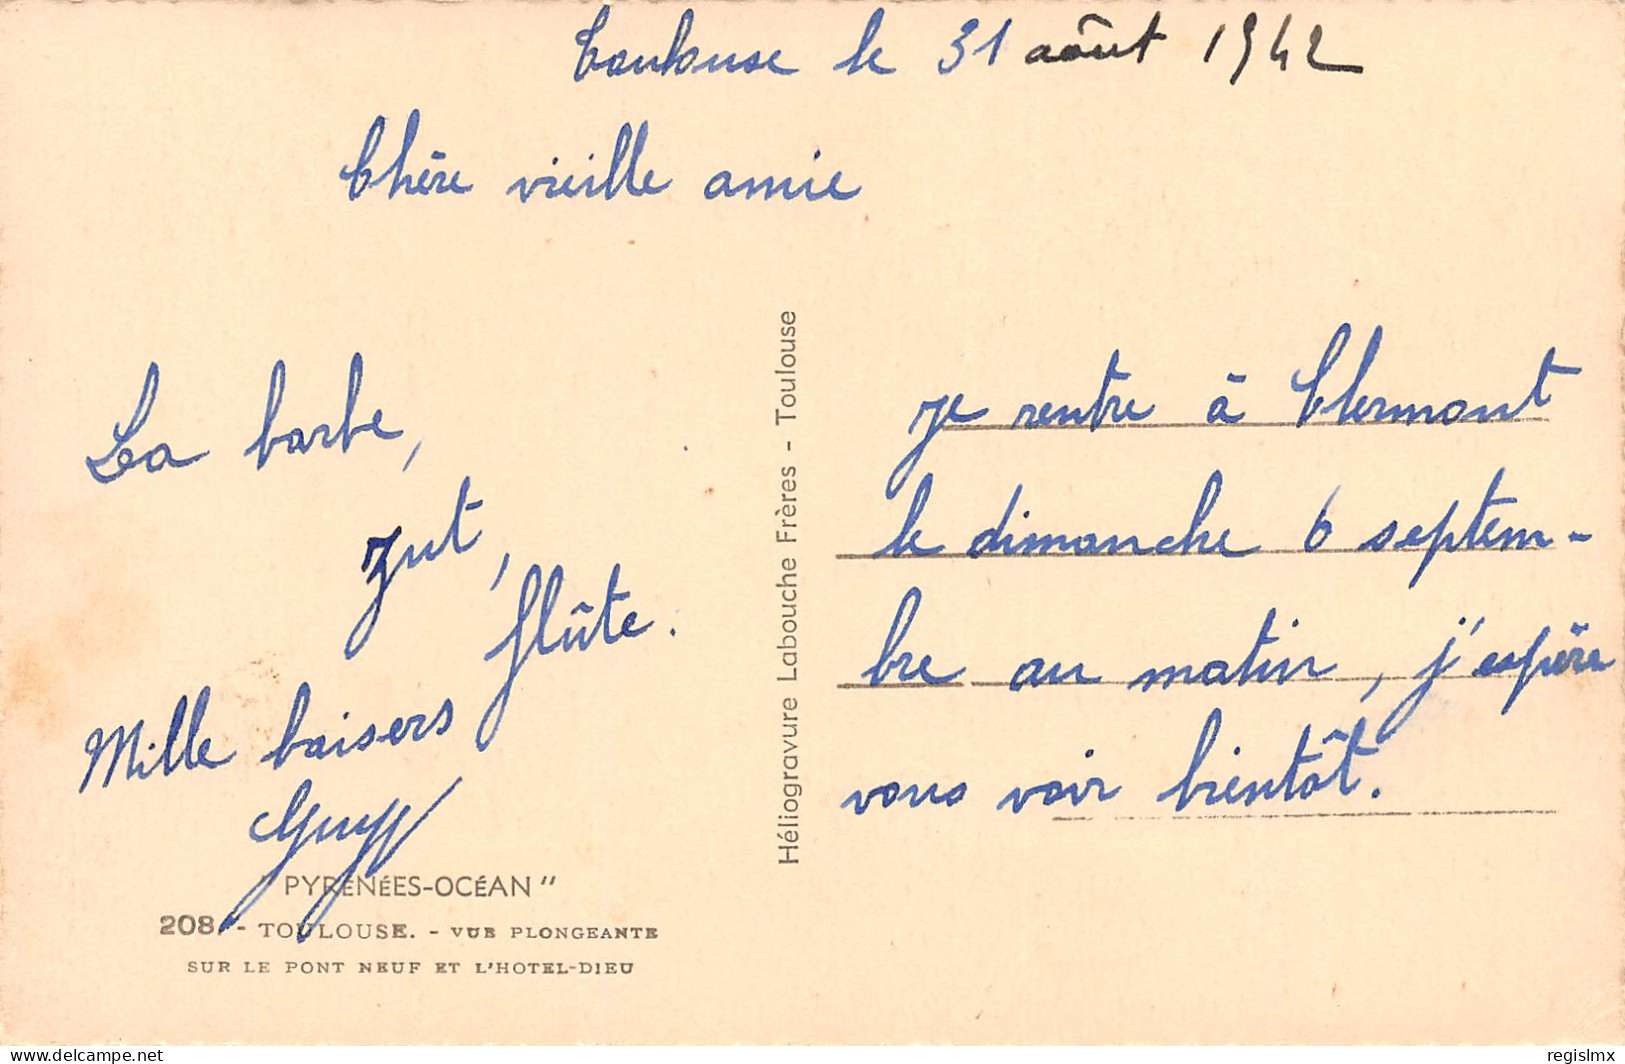 Toulouse le 31 août 1942
Chère vieille amie
La barbe,
zut,
flûte.
Mille baisers
Guy
"PYRÉNÉES-OCÉAN"
208. - TOULOUSE. - VUE PLONGEANTE
SUR LE PONT NEUF ET L'HOTEL-DIEU
Héliogravure Labouche Frères - Toulouse
je rentre à Clermont
le dimanche 6 septem-
bre au matin, j'espère
vous voir bientôt.
delcampe.net
regislmx